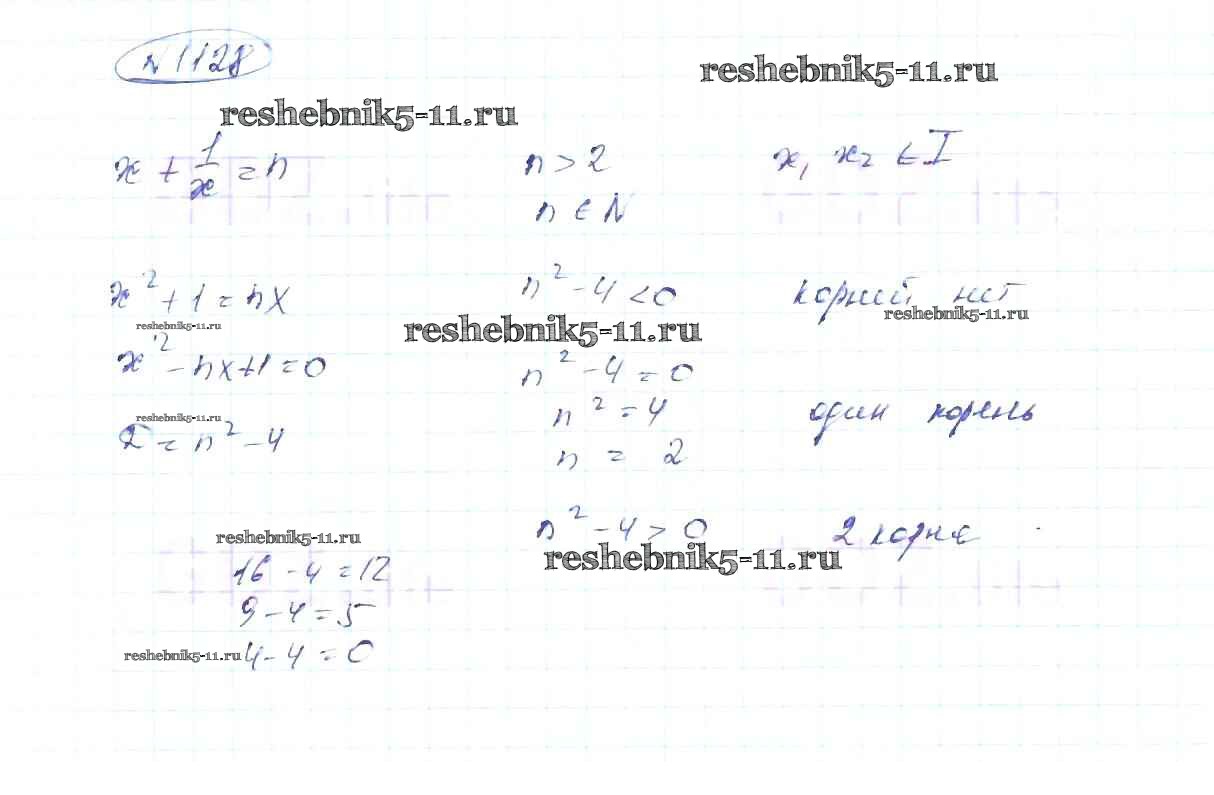 N 1128
reshebnik5-11.ru
reshebnik5-11.ru
x + 1/x = n n > 2 x₁ x₂ ∈ I
n ∈ N
x² + 1 = nx n² - 4 < 0 корний нет
reshebnik5-11.ru
reshebnik5-11.ru
reshebnik5-11.ru
x² - nx + 1 = 0 n² - 4 = 0
reshebnik5-11.ru
n² = 4 один корень
D = n² - 4 n = 2
n² - 4 > 0 2 корня
reshebnik5-11.ru
reshebnik5-11.ru
16 - 4 = 12
9 - 4 = 5
reshebnik5-11.ru 4 - 4 = 0